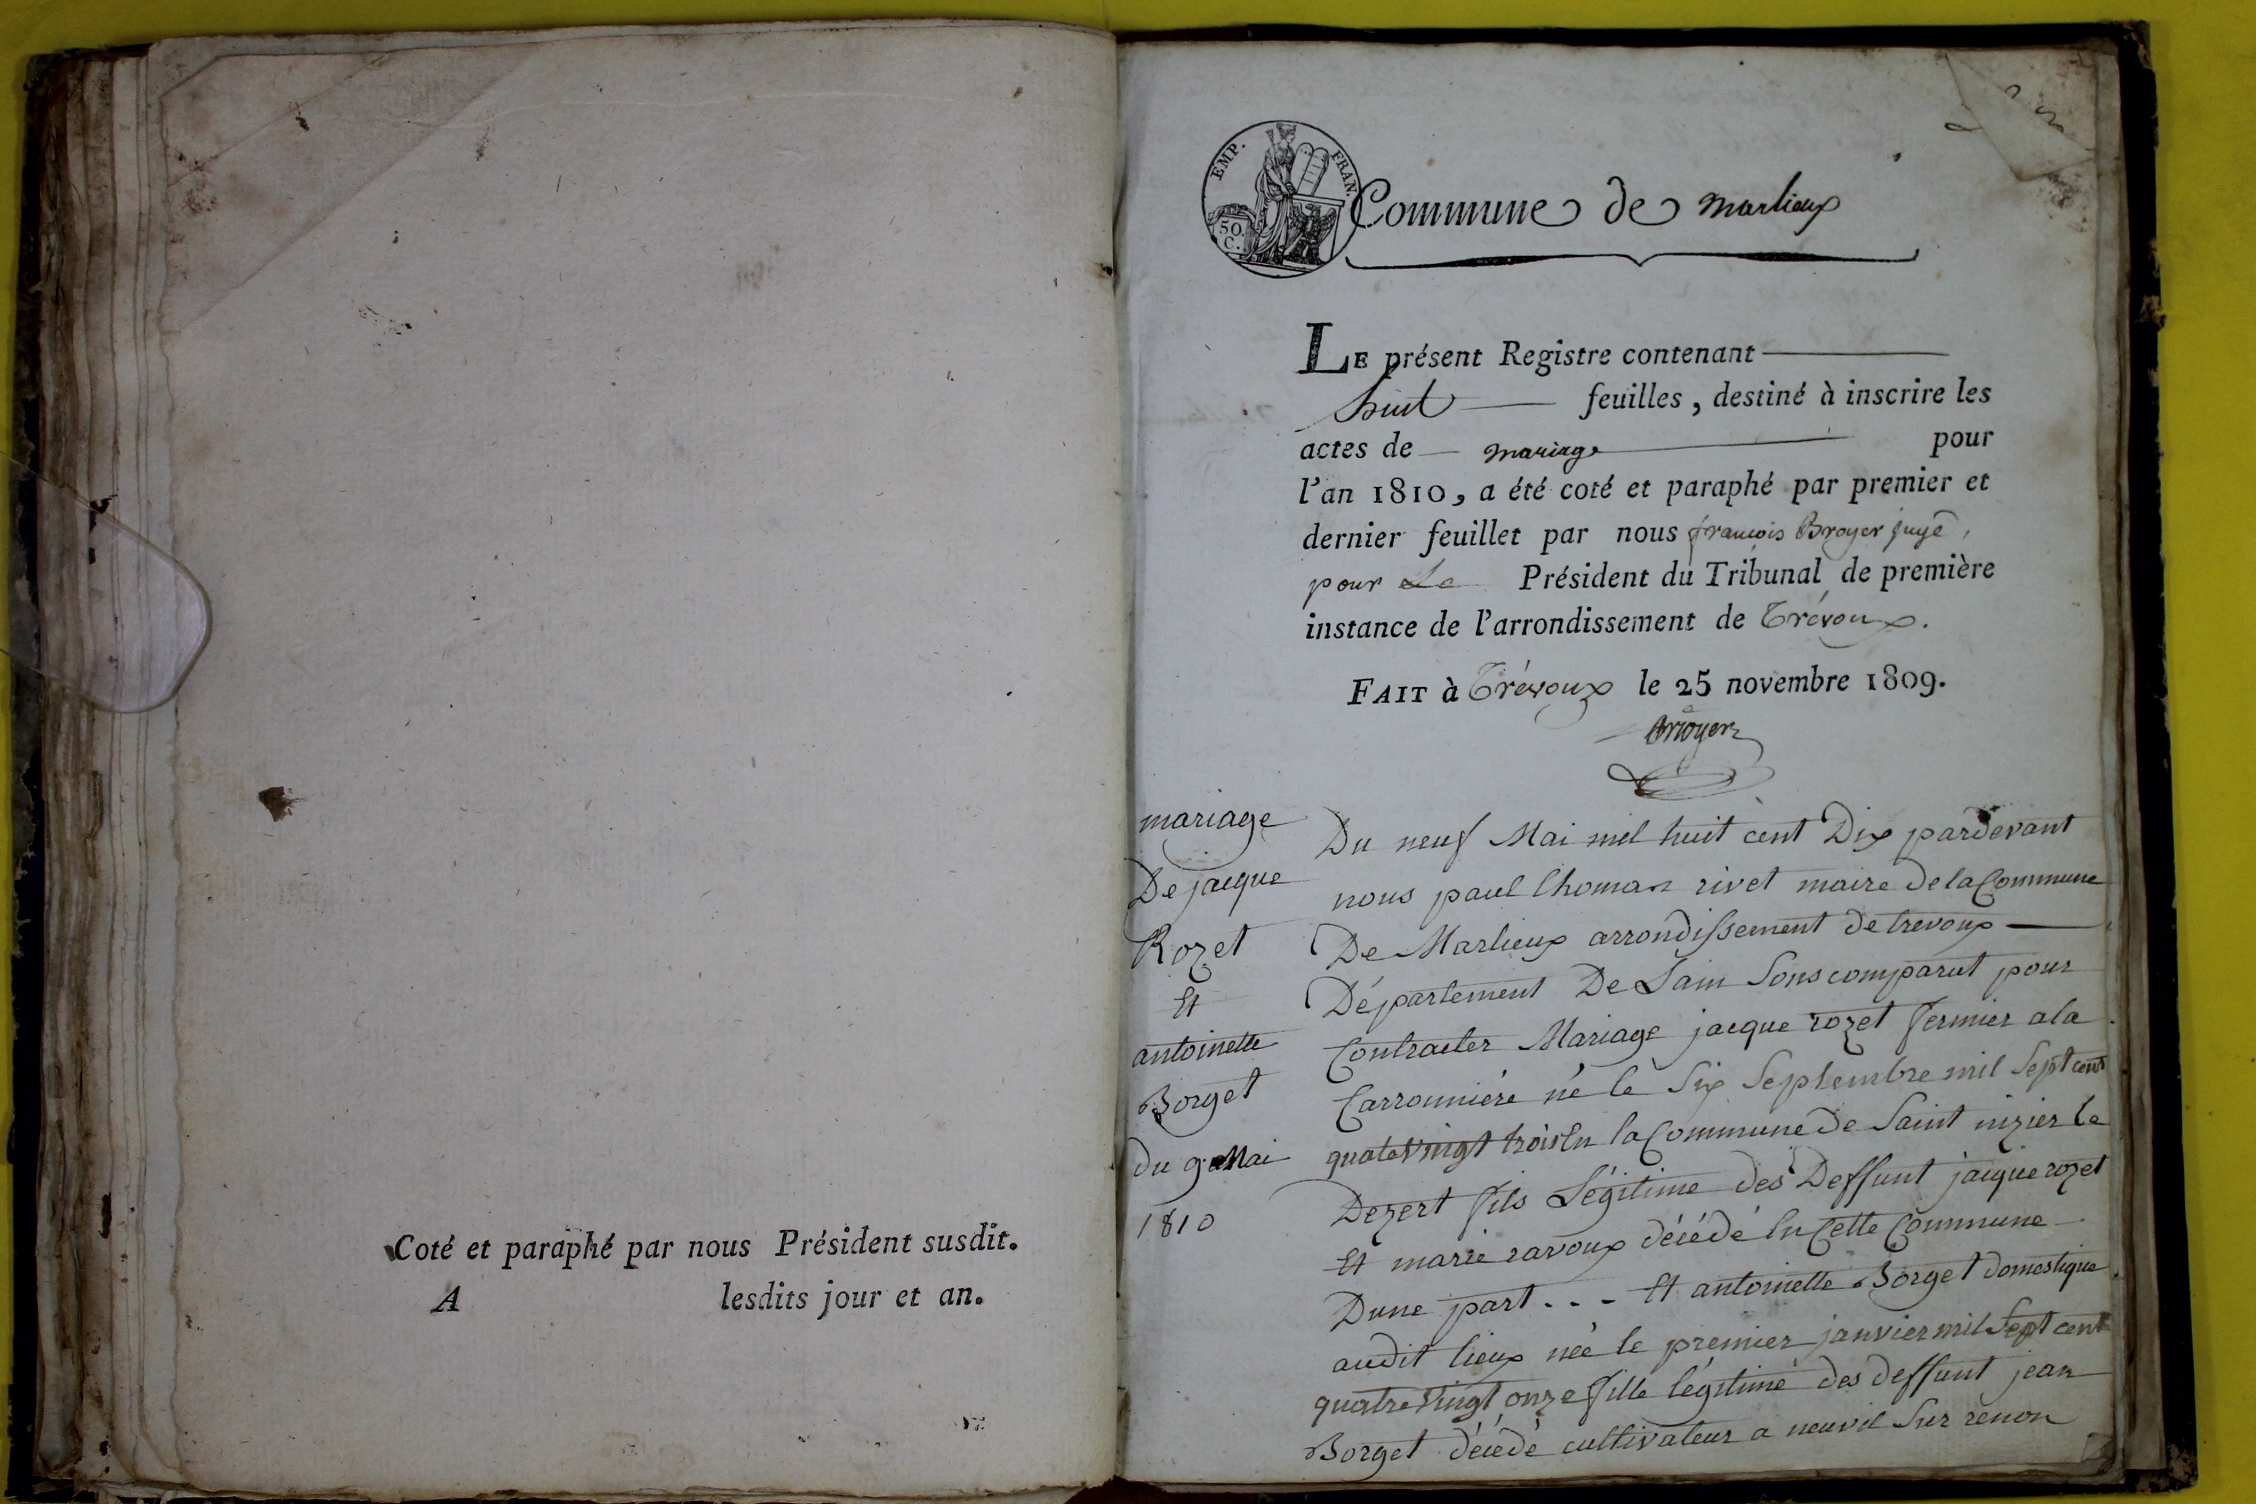 Coté et paraphé par nous Président susdit.
A lesdits jour et an.
EMP. FRAN.
50.
C.
Commune de Marlieux
LE présent Registre contenant
huit feuilles, destiné à inscrire les
actes de mariage pour
l'an 1810, a été coté et paraphé par premier et
dernier feuillet par nous françois Broyer juge,
pour Le Président du Tribunal de première
instance de l'arrondissement de Trévoux.
FAIT à Trévoux le 25 novembre 1809.
Broyer
mariage
De jacque
Rozet
Et
antoinette
Borget
Du 9 Mai
1810
Du neuf Mai mil huit cent Dix pardevant
nous paul thomas rivet maire de la Commune
De Marlieux arrondissement de trevoux
Département De Lain Sons comparut pour
Contracter Mariage jacque rozet fermier a la
Carronniére né le Six Septembre mil Sept cent
quatevingt trois En la Commune de Saint nizier le
Dezert fils Légitime des Deffunt jacque rozet
Et marie ravoux décédé En Cette Commune
Dune part... Et antoinette Borget domestique
audit lieux née le premier janvier mil Sept cent
quatre vingt onze fille légitime des deffunt jean
Borget décédé cultivateur a neuvil Sur renon